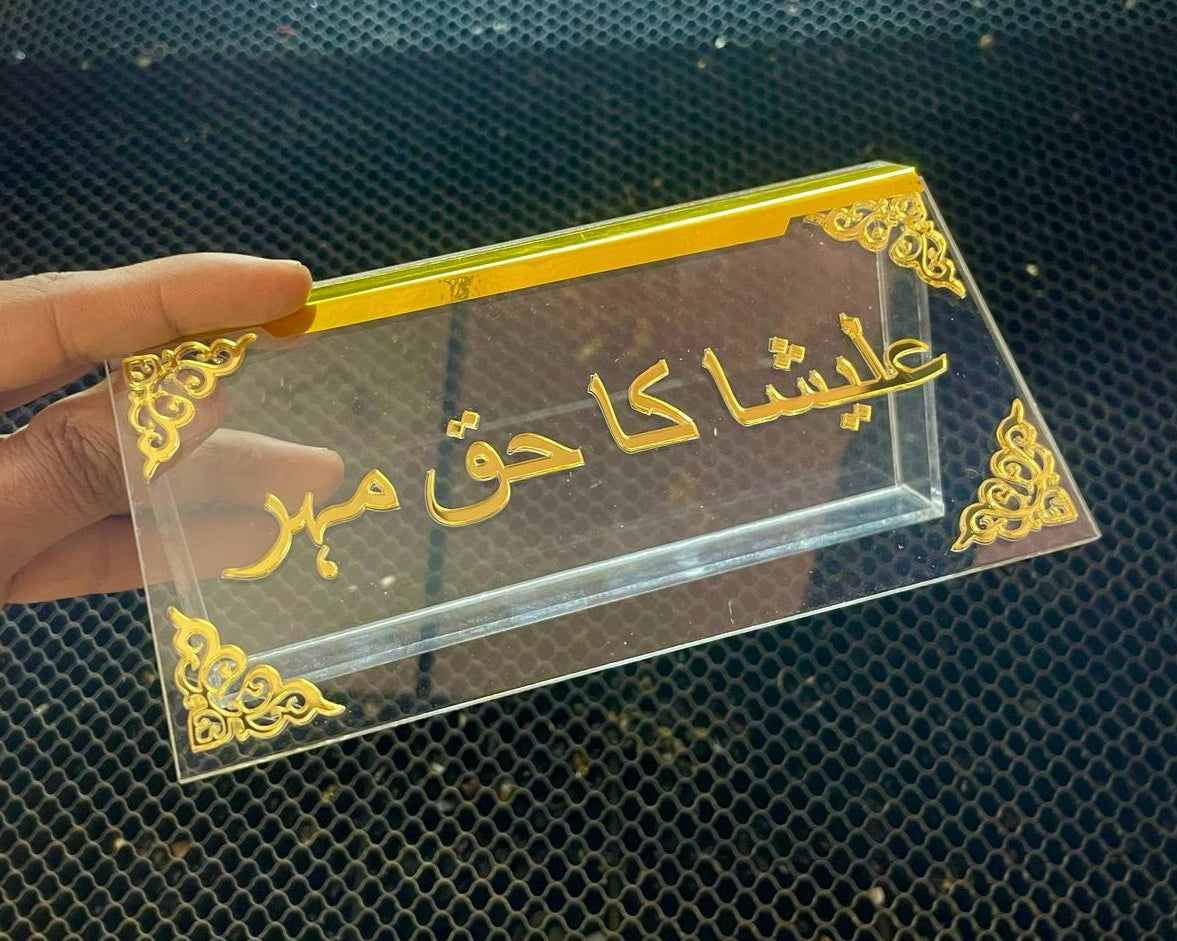 علیشا کا حق مہر